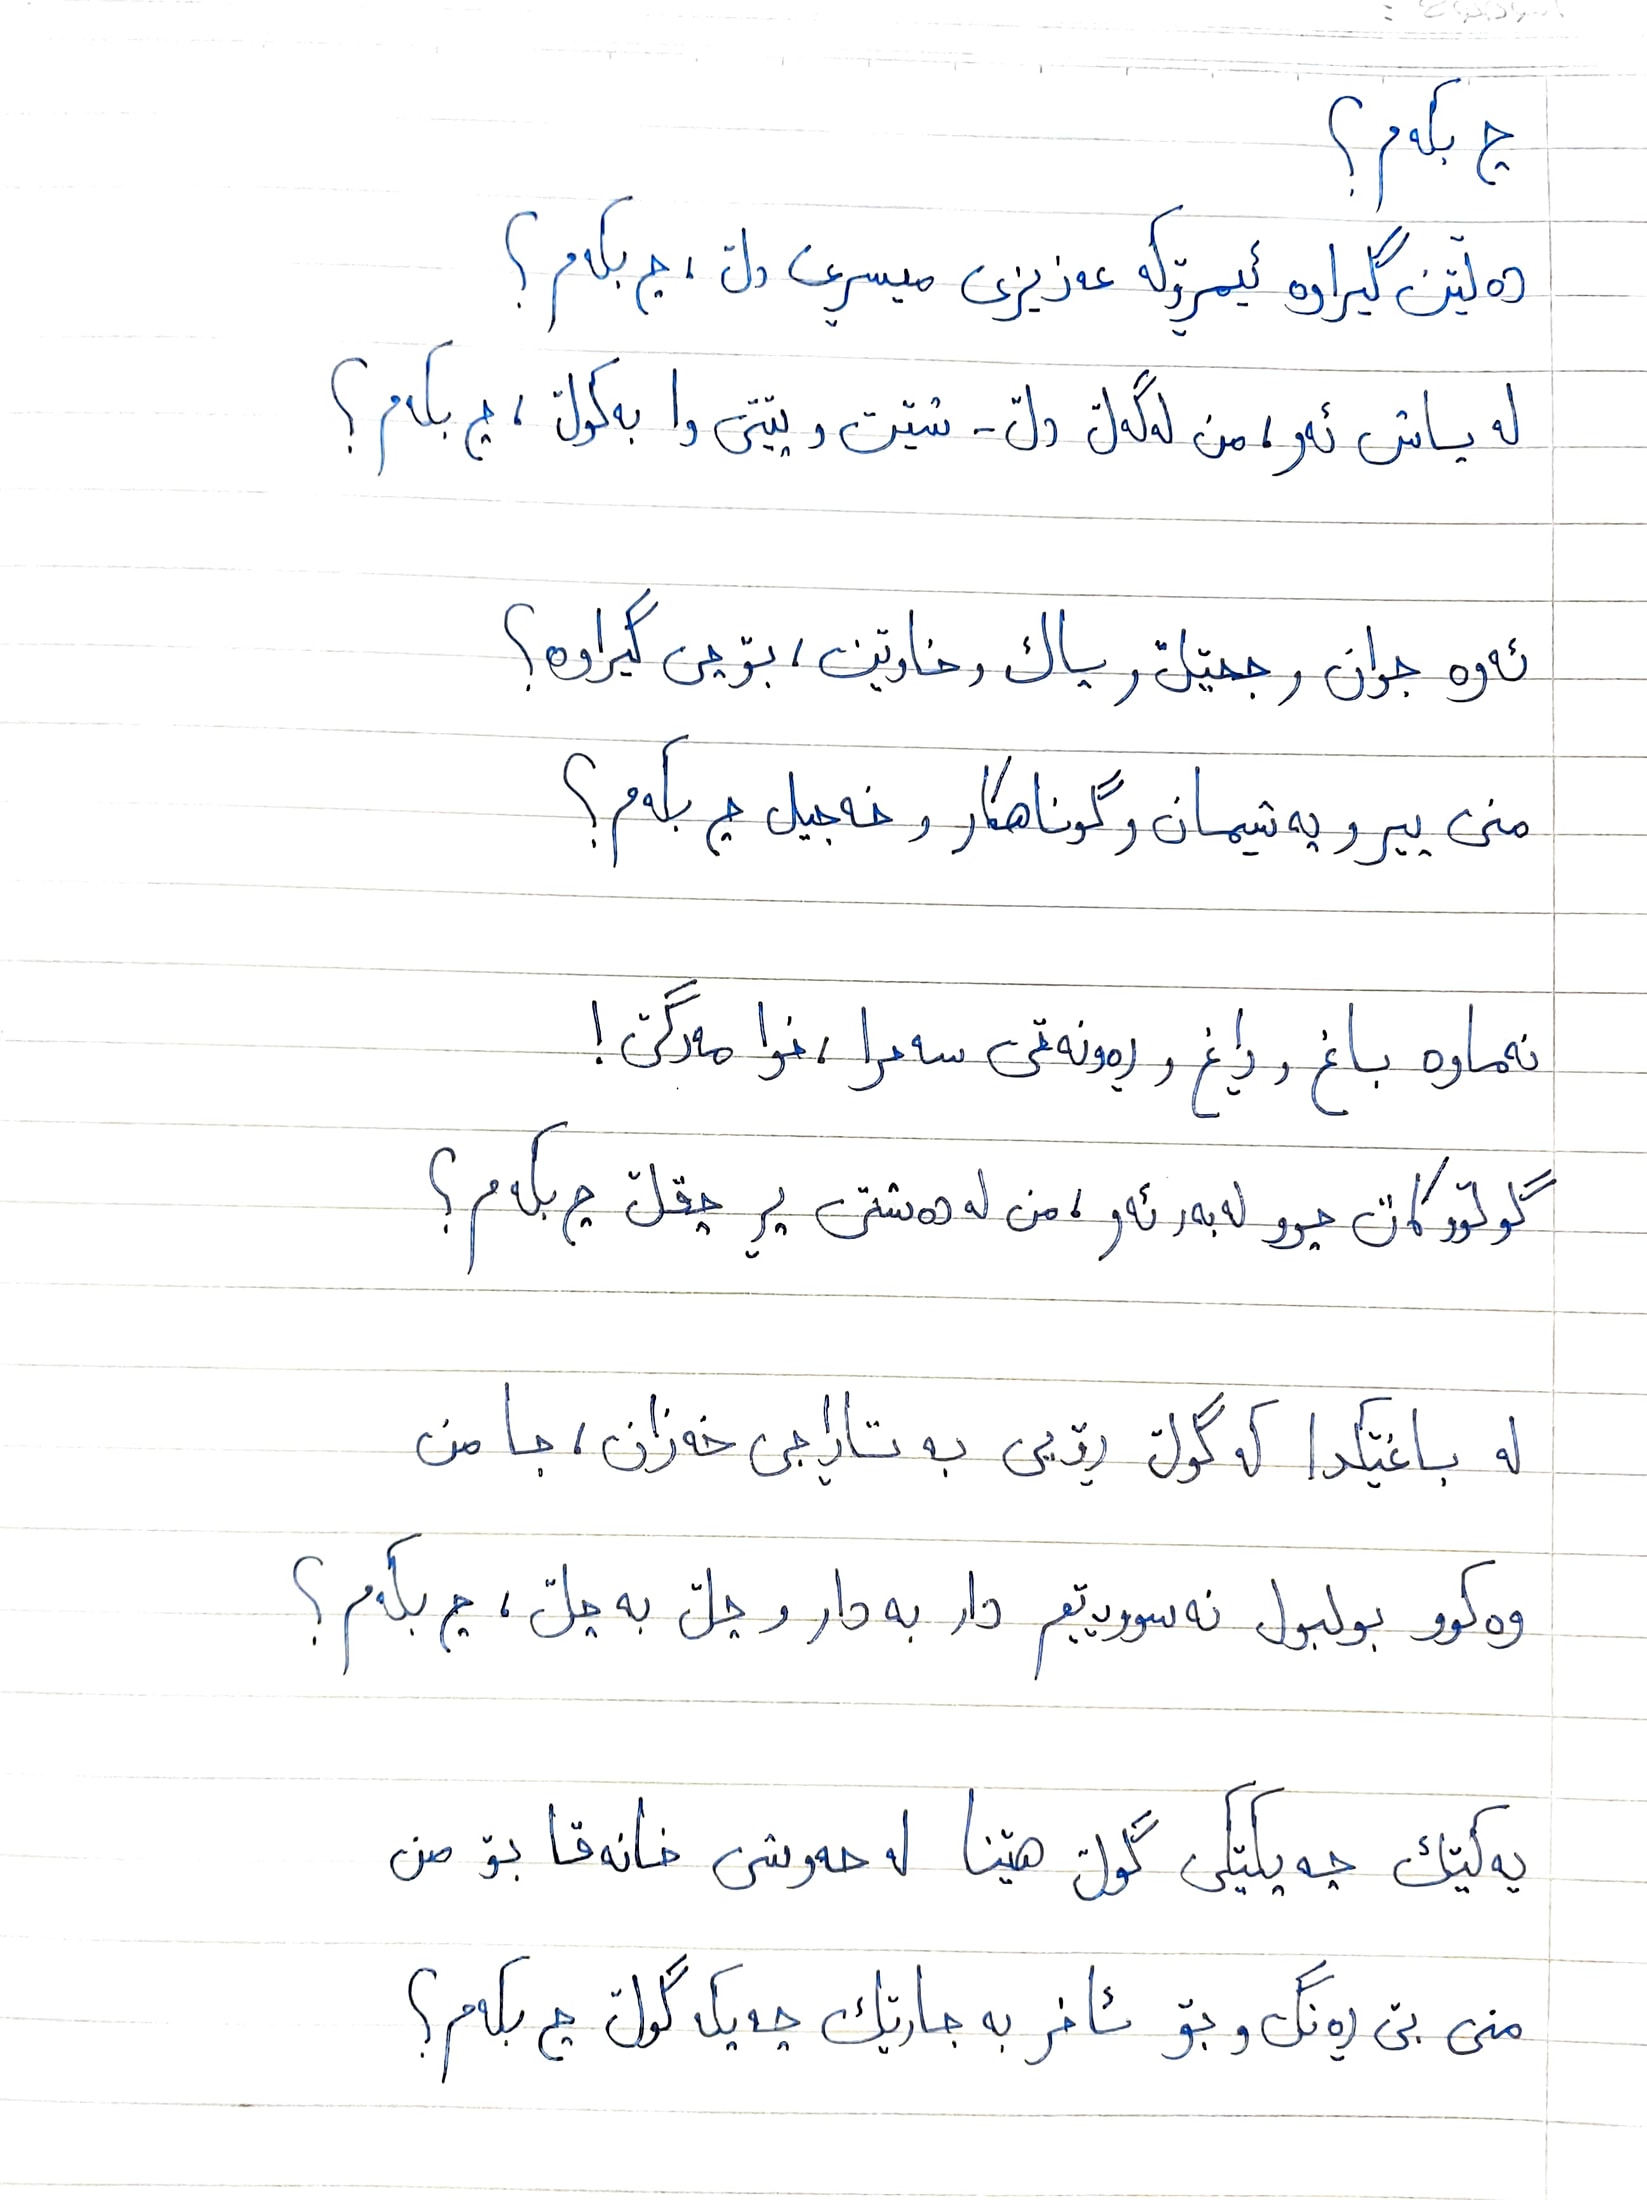 چ بکەم؟
دەڵێن گیراوە ئیمڕۆکە عەزیزی میسری دڵ، چ بکەم؟
لە پاش ئەو، من لەگەڵ دڵ - شێت و پێتی وا بەکوڵ، چ بکەم؟
ئەوە جوان و جحێڵ و پاك و خاوێن، بۆچی گیراوە؟
منی پیر و پەشیمان و گوناهکار و خەجیل چ بکەم؟
نەماوە باغ و ڕاغ و ڕەونەقی سەحرا، خوا مەرگێ!
گوڵوکات چوو لەبەر ئەو، من لە دەشتی پڕ چقڵ چ بکەم؟
لە باغێکدا کە گوڵ ڕۆیی بە تاڕاجی خەزان، جا من
وەکوو بولبول نەسووڕێم دار بە دار و چڵ بە چڵ، چ بکەم؟
یەکێك چەپکێکی گوڵ هێنا لە حەوشی خانەقا بۆ من
منی بێ ڕەنگ و بۆ ئاخر بە جارێك چەپکە گوڵ چ بکەم؟